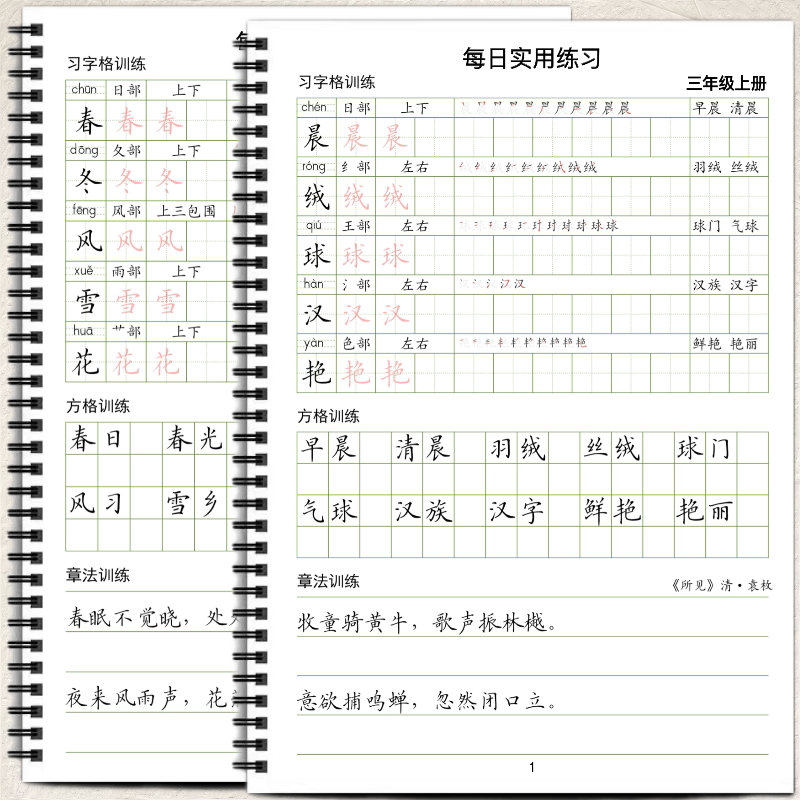 习字格训练
chūn 日部 上下
春 春 春
dōng 夂部 上下
冬 冬 冬
fēng 风部 上三包围
风 风 风
xuě 雨部 上下
雪 雪 雪
huā 艹部 上下
花 花 花
方格训练
春日 春光
风习 雪乡
章法训练
春眠不觉晓，处
夜来风雨声，花
每日实用练习
习字格训练 三年级上册
chén 日部 上下 早晨 清晨
晨 晨 晨
róng 纟部 左右 羽绒 丝绒
绒 绒 绒
qiú 王部 左右 球门 气球
球 球 球
hàn 氵部 左右 汉族 汉字
汉 汉 汉
yàn 色部 左右 鲜艳 艳丽
艳 艳 艳
方格训练
早晨 清晨 羽绒 丝绒 球门
气球 汉族 汉字 鲜艳 艳丽
章法训练 《所见》清·袁枚
牧童骑黄牛，歌声振林樾。
意欲捕鸣蝉，忽然闭口立。
1